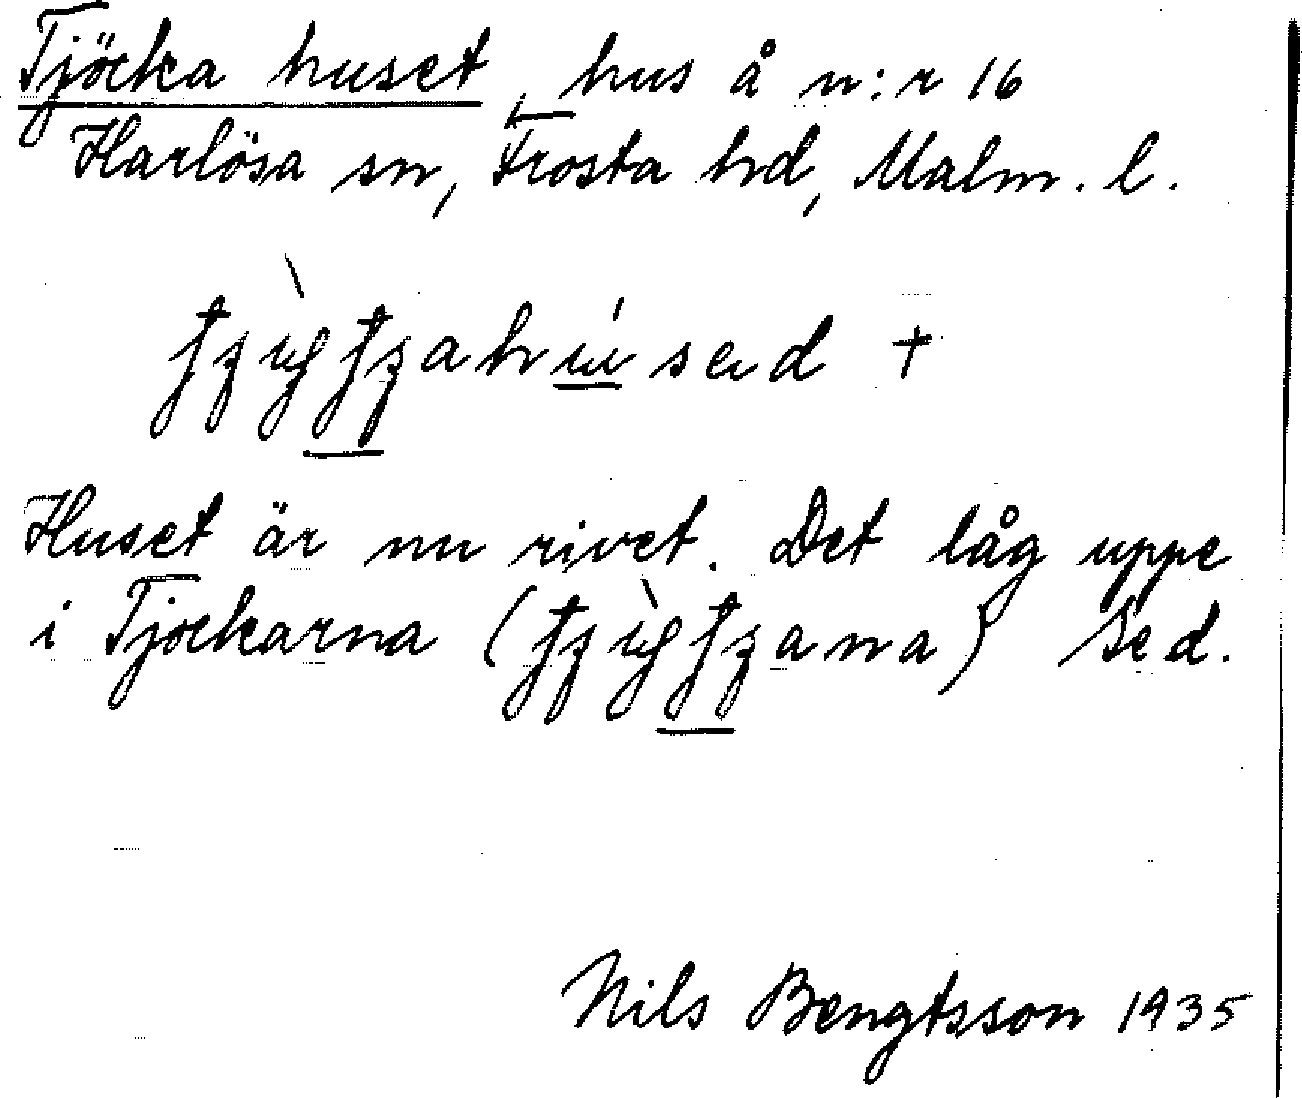 Tjöcka huset, hus å n:r 16
Harlösa sn, Frosta hd, Malm. l.
Huset är nu rivet. Det låg uppe
i Tjockarna ( ) Se d.
Nils Bengtsson 1935